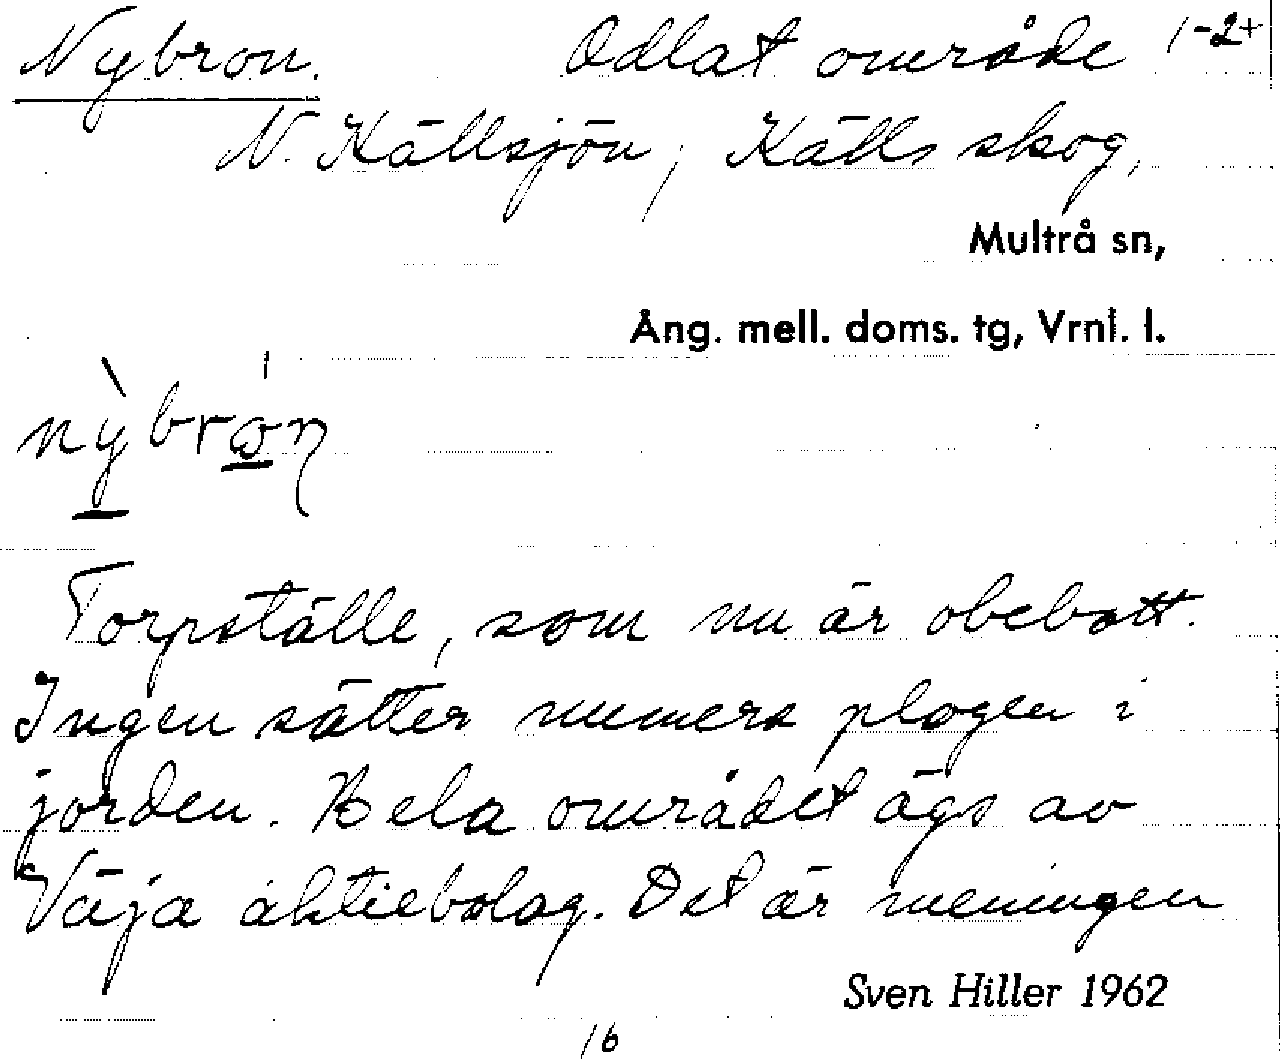 Nybron. Odlat område 1-2+
N. Källsjön, Källs skog,
Multrå sn,
Ång. mell. doms. tg, Vrnl. l.
nỳbrón
Torpställe, som nu är obebott.
Ingen sätter numera plogen i
jorden. Hela området ägs av
Väja aktiebolag. Det är meningen
Sven Hiller 1962
16